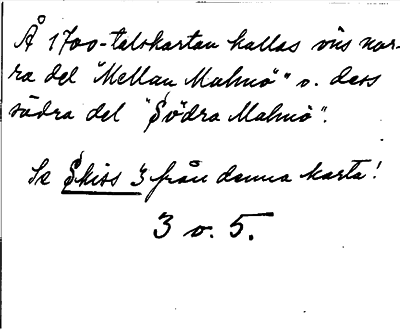 Å 1700-talskartan kallas ö:ns nor-
ra del "Mellan Malmö" o. dess
södra del "Södra Malmö".
Se Skiss 3 från denna karta!
3 o. 5.